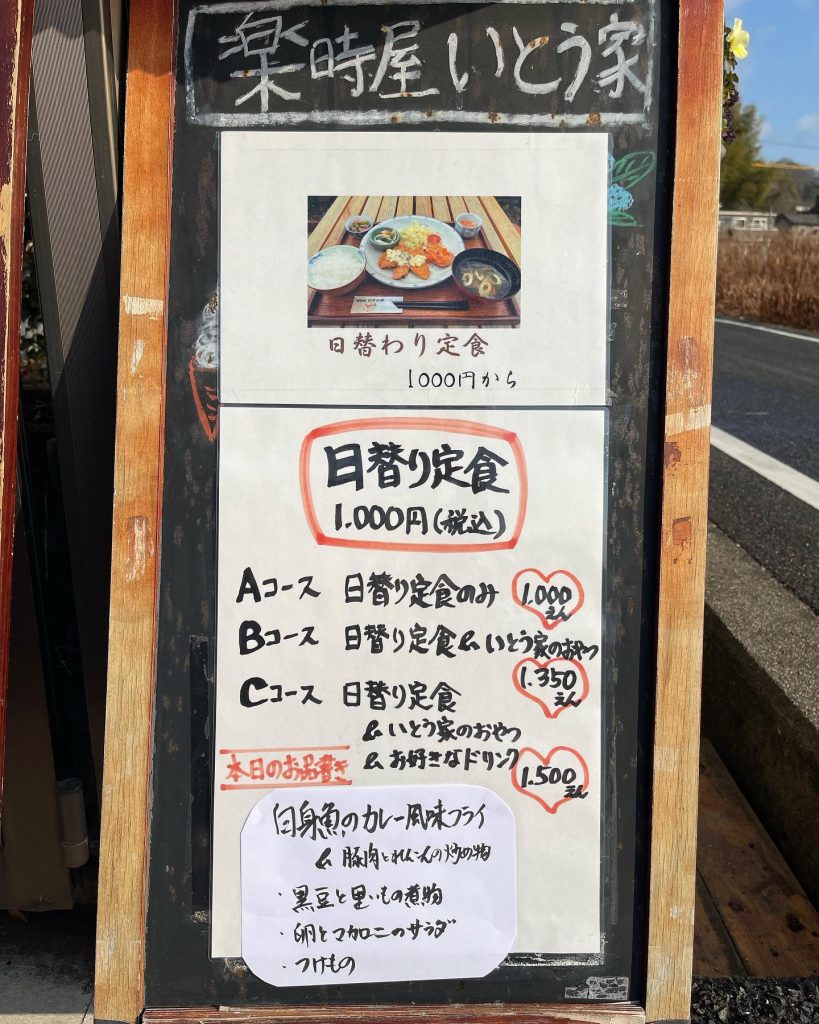 楽時屋 いとう家
日替わり定食
1000円から
日替り定食
1.000円(税込)
Aコース 日替り定食のみ 1.000えん
Bコース 日替り定食&いとう家のおやつ
1.350えん
Cコース 日替り定食
&いとう家のおやつ
&お好きなドリンク
1.500えん
本日のお品書き
白身魚のカレー風味フライ
& 豚肉とれんこんの炒め物
・黒豆と里いもの煮物
・卵とマカロニのサラダ
・つけもの